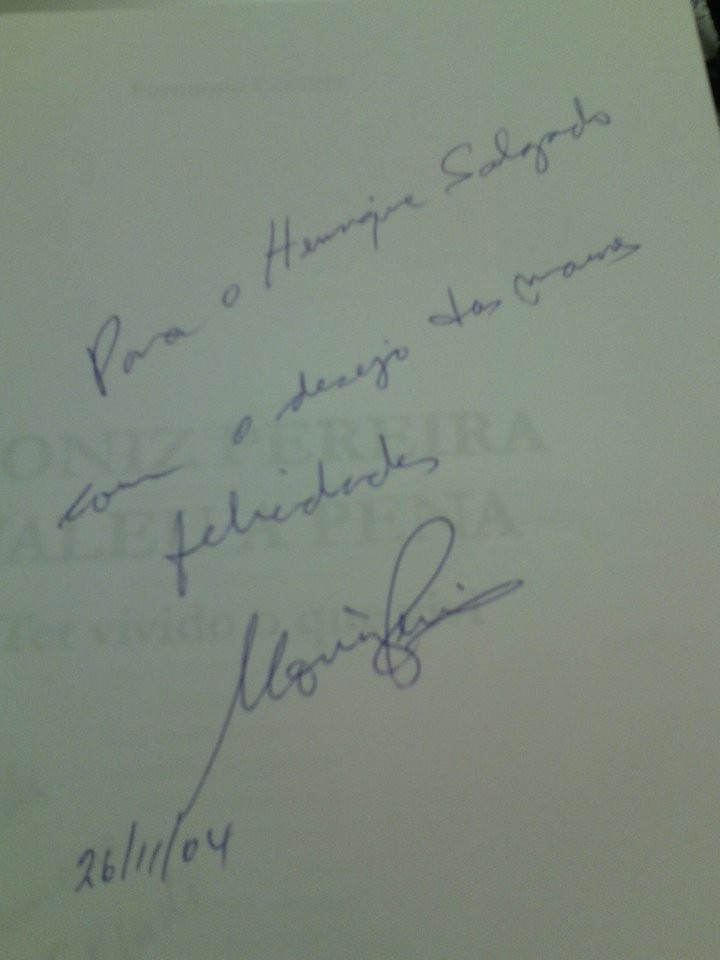 Para o Henrique Salgado
com o desejo das maiores
felicidades
26/11/04
ONIZ PEREIRA
VALEU A PENA
Ter vivido o que